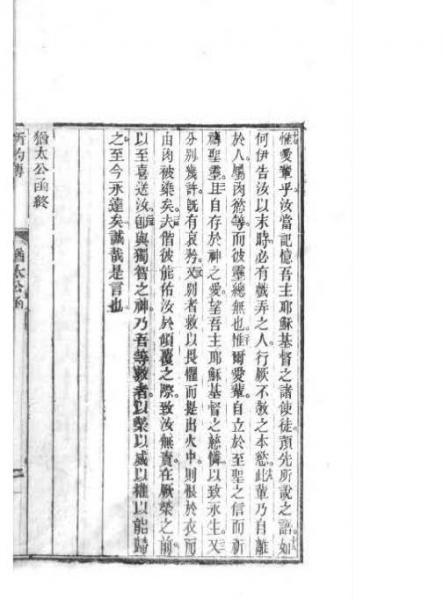 惟愛輩乎汝當記憶吾主耶穌基督之諸使徒預先所說之語如
何伊告汝以末時必有戲弄之人行厥不敬之本慾此輩乃自離
於人屬肉慾等而彼靈總無也惟爾愛輩自立於至聖之信而祈
禱聖靈且自存於神之愛望吾主耶穌基督之慈憐以致永生又
分別幾許既有哀矜又別者救以畏懼而提出火中則恨於衣而
由肉被染矣夫偕彼能佑汝於傾覆之際致汝無責在厥榮之前
以至喜送汝即與獨智之神乃吾等救者以榮以威以權以能歸
之至今永遠矣誠哉是言也
猶太公函終
猶太公函